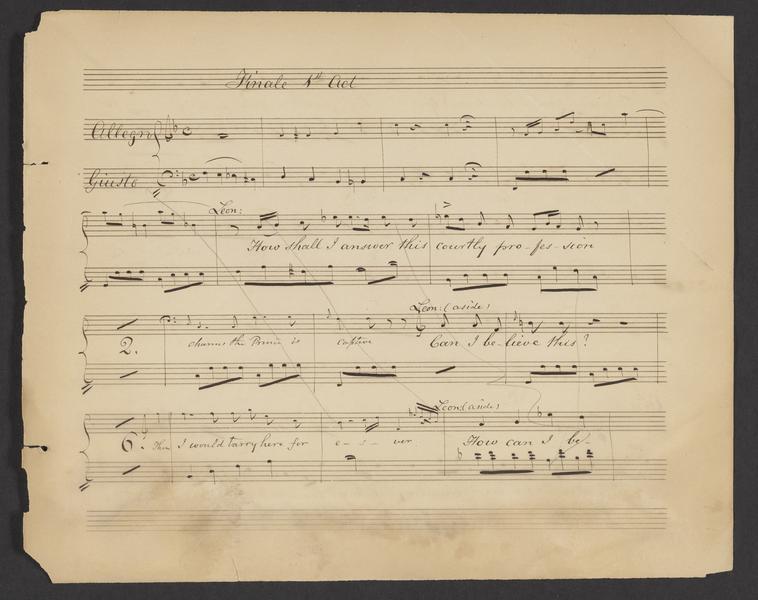 Finale 1st Act
Allegro
Giusto
Leon:
How shall I answer this courtly pro-fes-sion
Leon: (aside)
2. charms the Prince is captive Can I be-lieve this?
Leon (aside)
6. Then I would tarry here for e-v-er How can I be-